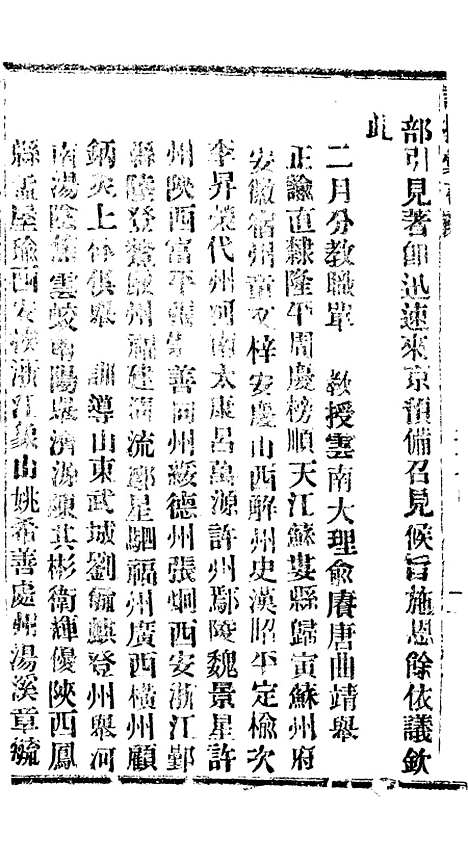 部引見著卽迅速來京預備召見候旨施恩餘依議欽
此
二月分教職單 教授雲南大理俞賡唐曲靖舉
正諭直隸隆平周慶榜順天江蘇婁縣歸寅蘇州府
安徽宿州童文梓安慶山西解州史漢昭平定榆次
李昇榮代州河南太康呂萬源許州鄢陵魏景星許
州陝西富平張 善同州綏德州張炯西安浙江鄞
縣陸登鰲 州福建淸流鄒星駟福州廣西橫州顧
炳炎上 俱舉 訓導山東武城劉 麒登州舉河
南湯陰焦雲蛟南陽舉濟源陳其彬衛輝優陝西鳳
縣孟屋瑜西安 浙江象山姚希善處州湯溪章毓